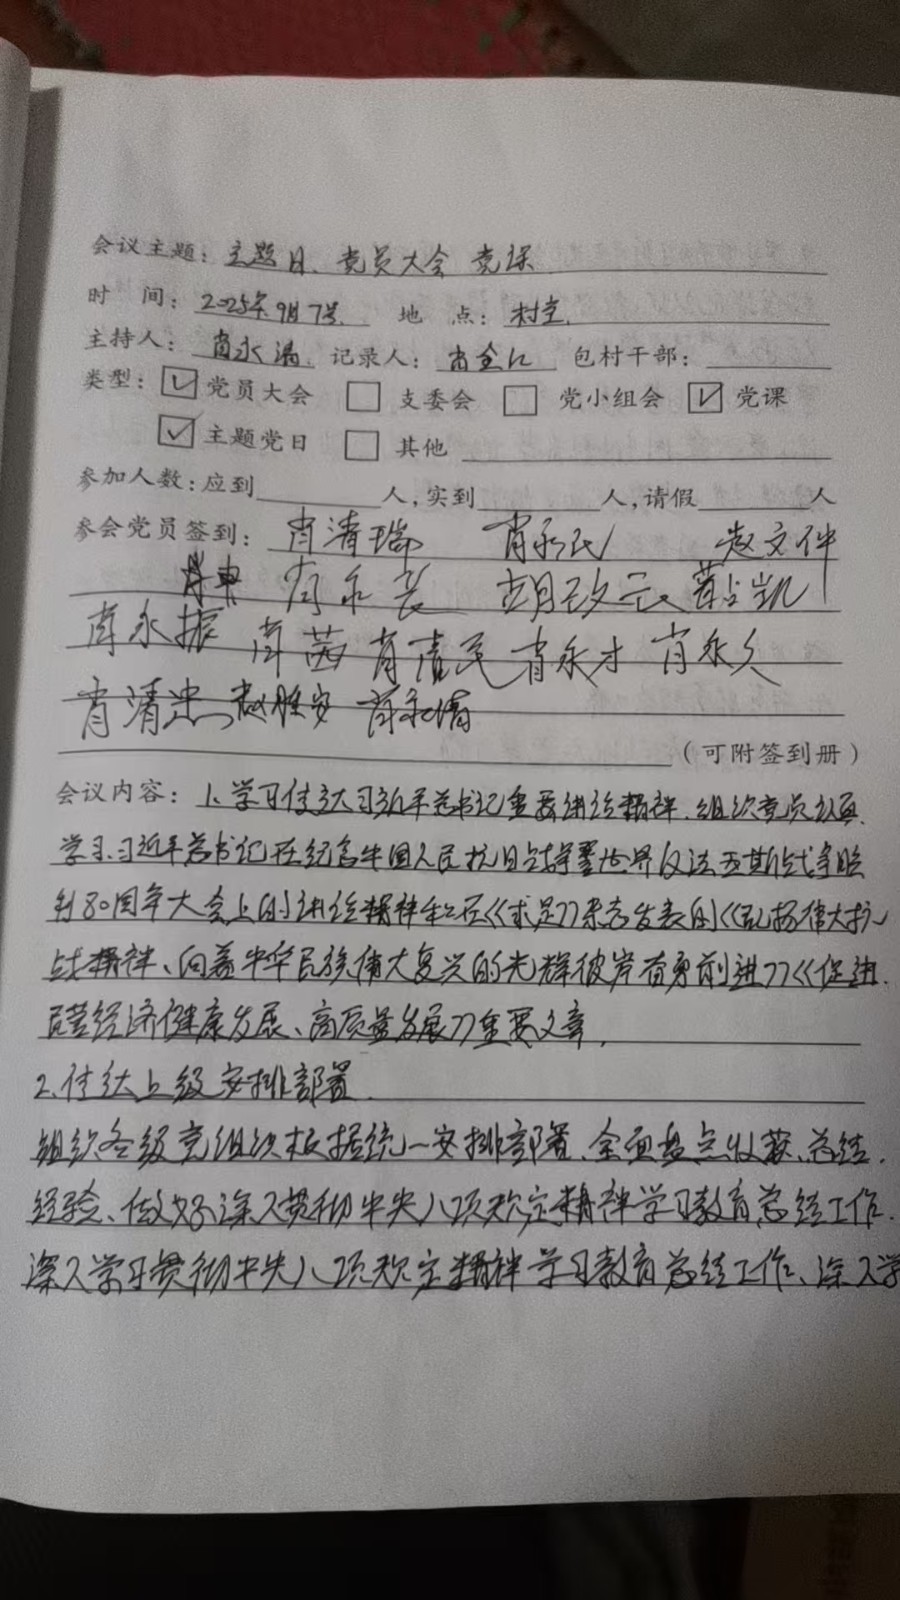 会议主题：主题日、党员大会 党课
时 间：2025年9月7号 地 点：村室
主持人：肖永满 记录人：肖全江 包村干部：
类型：☑党员大会 □支委会 □党小组会 ☑党课
☑主题党日 □其他
参加人数：应到 人，实到 人，请假 人
参会党员签到：肖清瑞 肖永民 赵文伴
肖永长 胡改云 占凯
肖永振 肖茜 肖清民 肖永才 肖永久
肖清忠 赵胜安 肖永清
（可附签到册）
会议内容：1、学习传达习近平总书记重要讲话精神、组织党员认真
学习、习近平总书记在纪念中国人民抗日战争暨世界反法西斯战争胜
利80周年大会上的讲话精神和在《求是》杂志发表的《弘扬伟大抗
战精神、向着中华民族伟大复兴的光辉彼岸奋勇前进》《促进
民营经济健康发展、高质量发展》重要文章。
2、传达上级安排部署
组织各级党组织根据统一安排部署、全面盘点收获、总结
经验、做好深入贯彻中央八项规定精神学习教育总结工作
深入学习贯彻中央八项规定精神学习教育总结工作、深入学